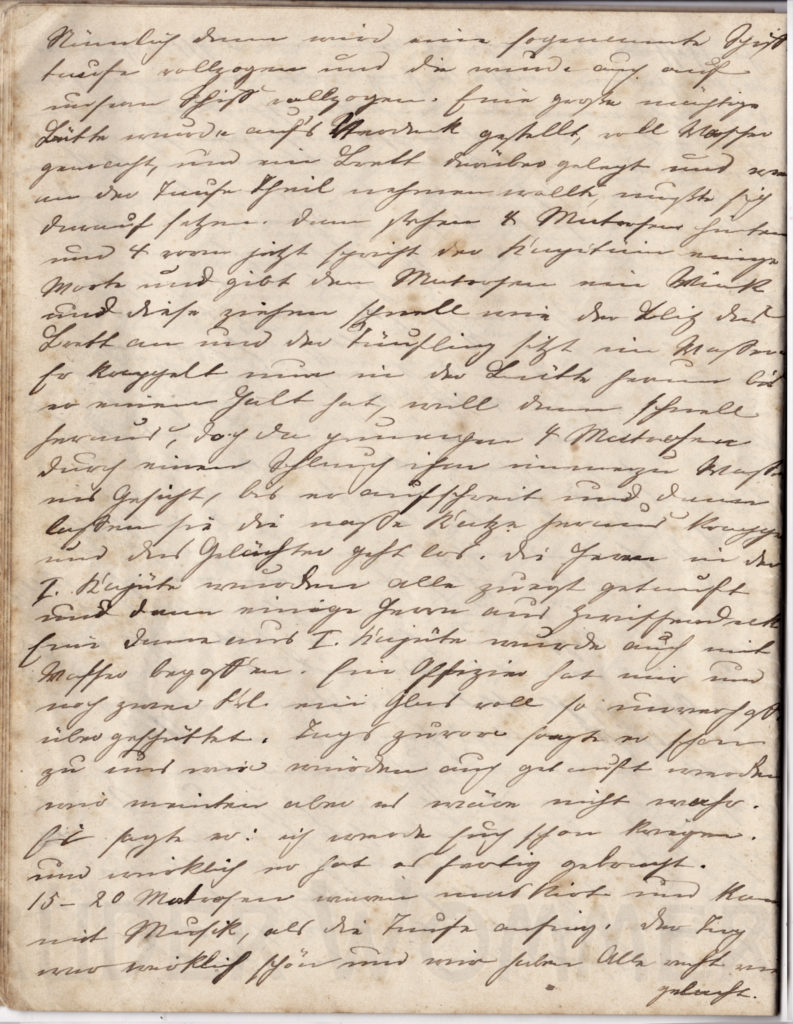 Nämlich dann wird eine sogenannte Schiff
taufe vollzogen und die wurde auch auf
unserm Schiff vollzogen. Eine große mächtige
Bütte wurde aufs Verdeck gestellt, voll Wasser
gemacht, und ein Brett darüber gelegt und wer
an der Taufe Theil nehmen wollte, mußte sich
darauf setzen. Dann stehen 4 Matrosen hinten
und 4 vorn jetzt spricht der Kapitain einige
Worte und gibt den Matrosen ein Wink
und diese ziehen schnell wie der Blitz das
Brett an und der Täufling sitzt im Wasser.
Er krappelt nun in der Bütte herum bis
er einen Halt hat, will dann schnell
heraus, doch da pumpen 4 Matrosen
durch einen Schlauch ihm immerzu Wasser
ins Gesicht, bis er aufschreit und dann
lassen sie die nasse Katze heraus
und das Gelächter geht los. Die Herrn in der
I. Kajüte wurden alle zuerst getauft
und dann einige Herrn aus Zwischendeck
Eine Dame aus I. Kajüte wurde auch mit
Wasser begossen. Ein Offizier hat mir und
noch zwei Frl. ein Glas voll so unverhofft
übergeschüttet. Tags zuvor sagte er schon
zu uns wir würden auch getauft werden
wir meinten aber es wäre nicht wahr.
sagte er: ich werde Euch schon kriegen.
und wirklich er hat es fertig gebracht.
15 - 20 Matrosen waren maskirt und kam
mit Musik, als die Taufe anfing. Der Tag
war wirklich schön und wir haben Alle recht
gelacht.